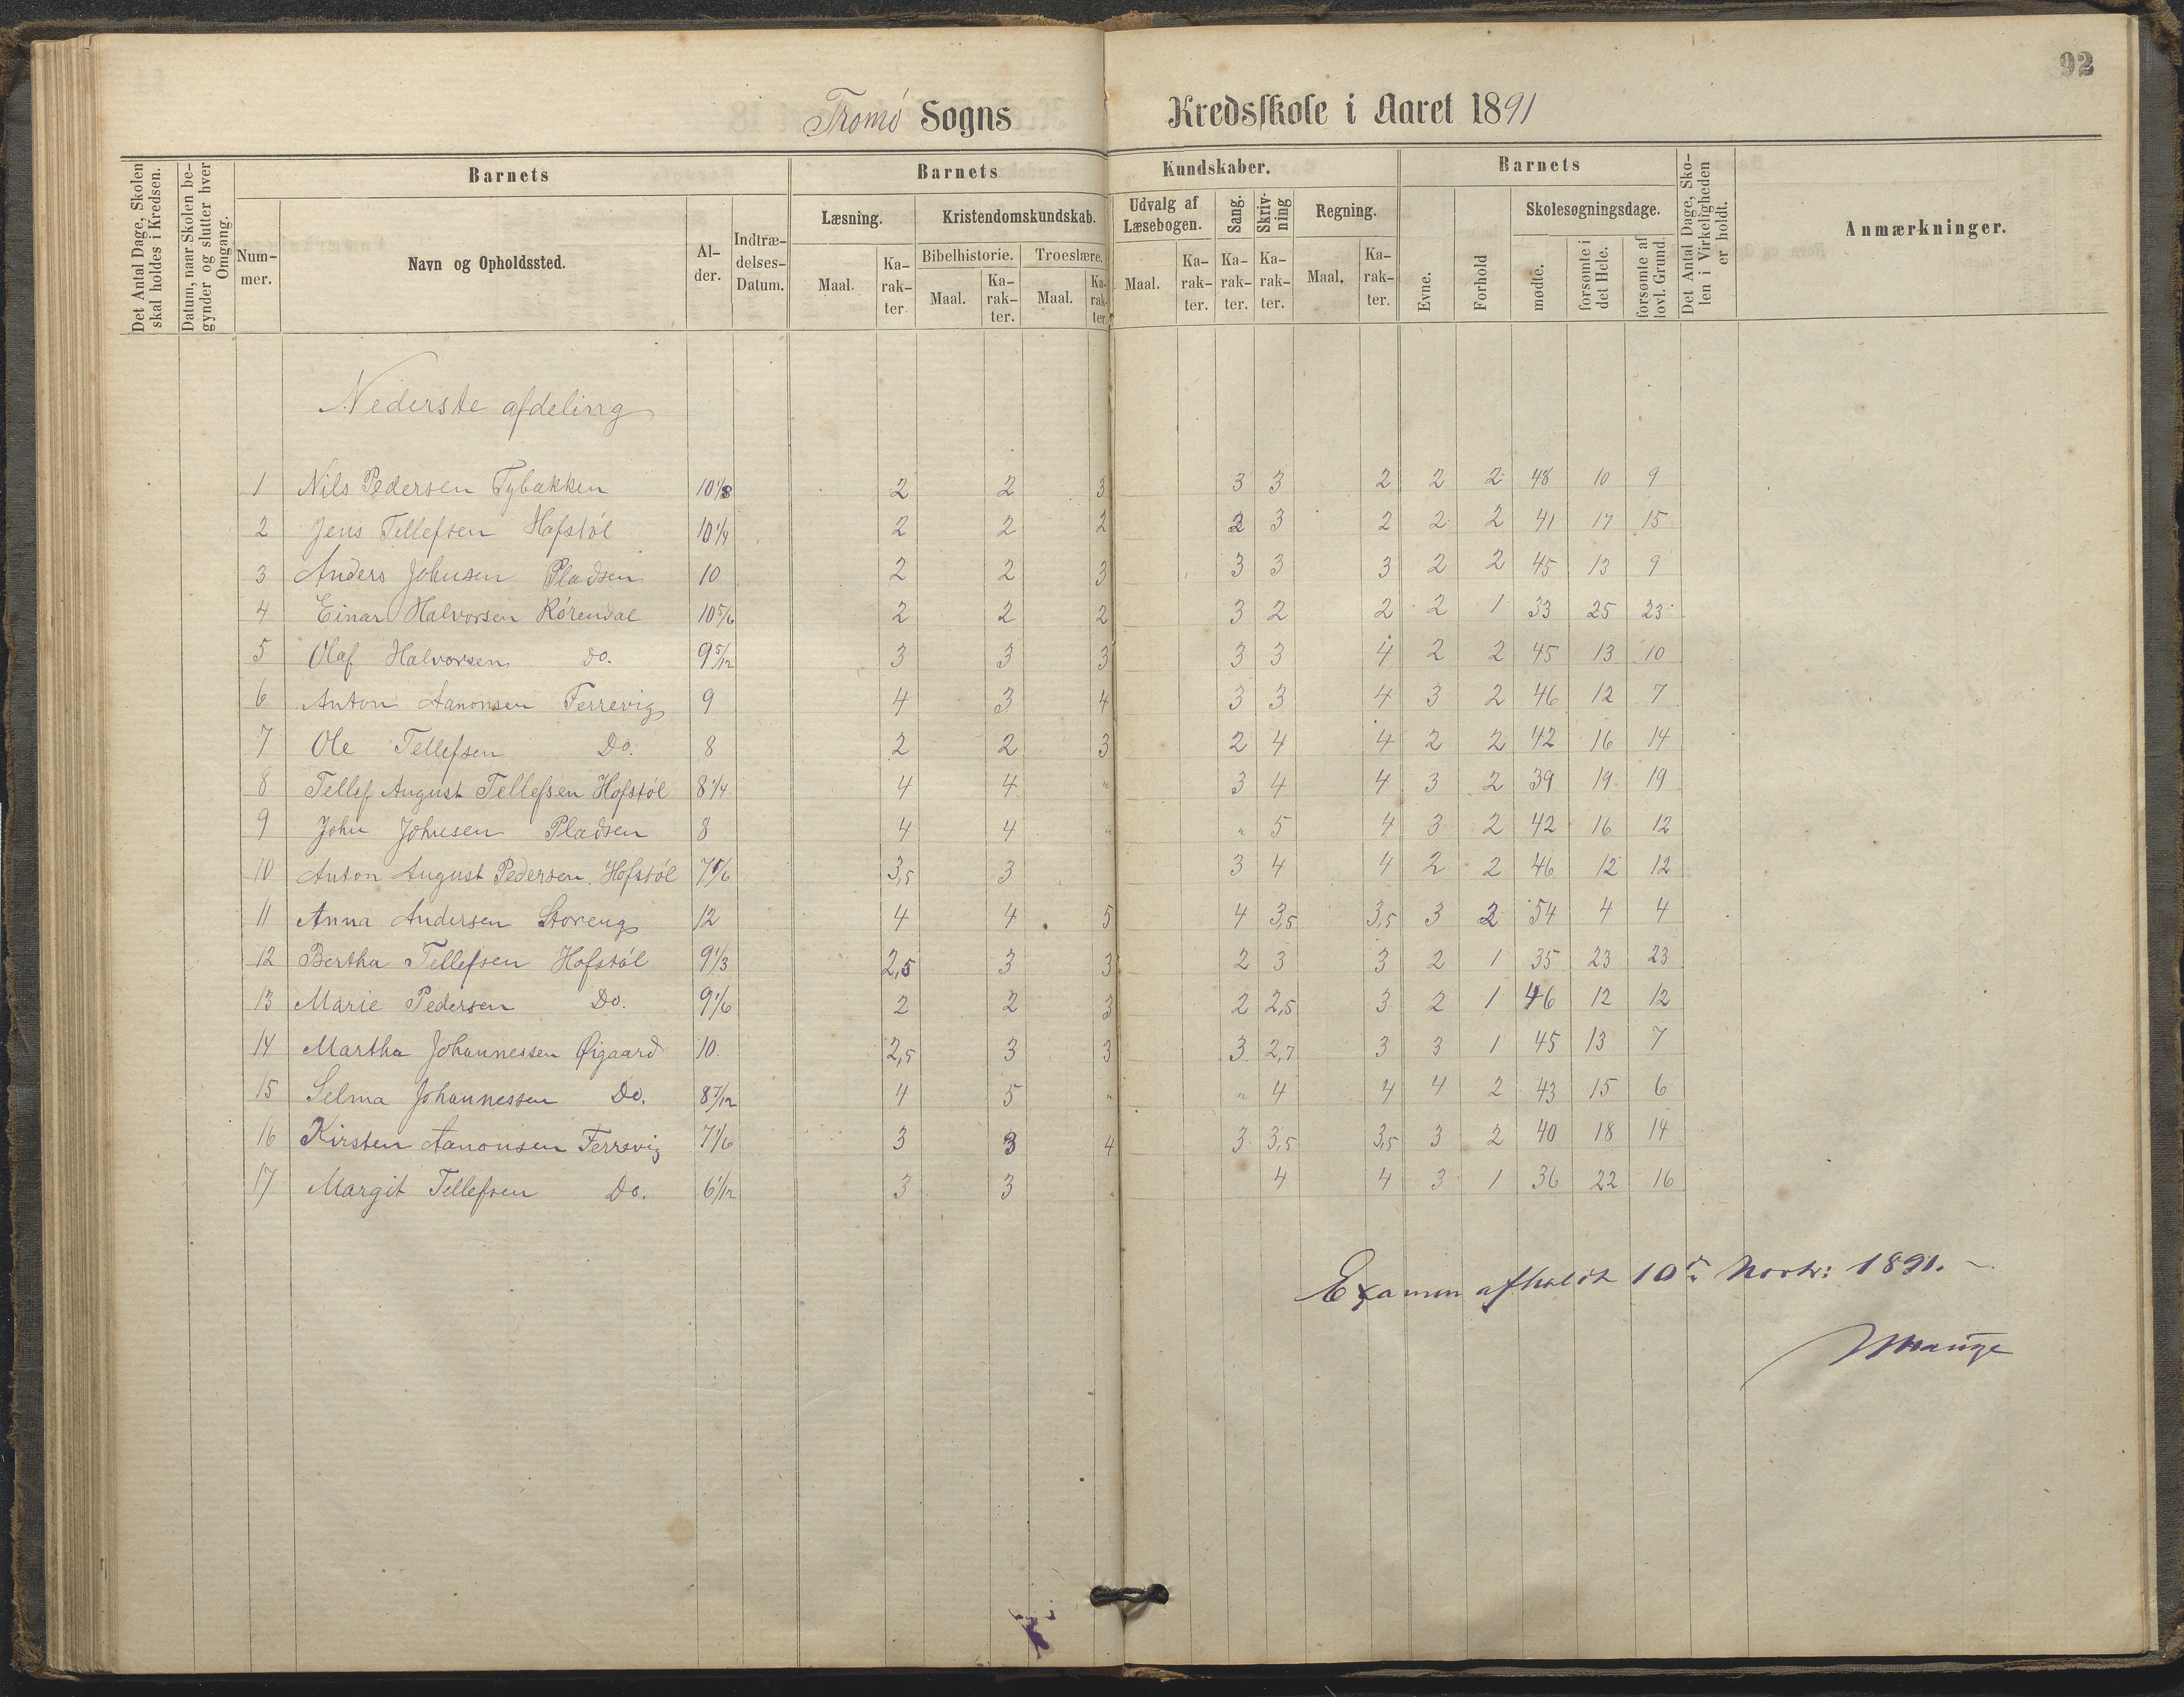 92
Tromö Sogns Kredsskole i Aaret 1891
Det Antal Dage, Skolen skal holdes i Kredsen.
Datum, naar Skolen begynder og slutter hver Omgang.
Barnets
Nummer.
Navn og Opholdssted.
Alder.
Indtrædelses-Datum.
Barnets Kundskaber.
Læsning.
Maal. Karakter
Kristendomskundskab.
Bibelhistorie. Troeslære.
Maal. Karakter. Maal. Karakter.
Udvalg af Læsebogen.
Maal. Karakter.
Sang. Karakter.
Skrivning Karakter.
Regning.
Maal. Karakter.
Barnets
Evne. Forhold
Skolesøgningsdage.
mødte. forsømte i det Hele. forsømte af lovl. Grund.
Det Antal Dage, Skolen i Virkeligheden er holdt.
Anmærkninger.
Nederste afdeling
1 Nils Pedersen Tybakken 10 1/8 2 2 3 3 3 2 2 2 48 10 9
2 Jens Tellefsen Hofstöl 10 1/4 2 2 2 2 3 2 2 2 41 17 15
3 Anders Johnsen Pladsen 10 2 2 3 3 3 3 2 2 45 13 9
4 Einar Halvorsen Rörendal 10 5/6 2 2 2 3 2 2 2 1 33 25 23
5 Olaf Halvorsen do. 9 5/12 3 3 3 3 3 4 2 2 45 13 10
6 Anton Aanonsen Ferrevig 9 4 3 4 3 3 4 3 2 46 12 7
7 Ole Tellefsen Do. 8 2 2 3 2 4 4 2 2 42 16 14
8 Tellef August Tellefsen Hofstöl 8 1/4 4 4 " 3 4 4 3 2 39 19 19
9 John Johnsen Pladsen 8 4 4 " " 5 4 3 2 42 16 12
10 Anton August Pedersen Hofstöl 7 5/6 3,5 3 3 4 4 2 2 46 12 12
11 Anna Andersen Storeng 12 4 4 5 4 3,5 3,5 3 2 54 4 4
12 Bertha Tellefsen Hofstöl 9 1/3 2,5 3 3 2 3 3 2 1 35 23 23
13 Marie Pedersen Do. 9 1/6 2 2 3 2 2,5 3 2 1 46 12 12
14 Martha Johannessen Øigaard 10. 2,5 3 3 3 2,7 3 3 1 45 13 7
15 Selma Johannessen Do. 8 7/12 4 5 " " 4 4 4 2 43 15 6
16 Kirsten Aanonsen Ferrevig 7 1/6 3 3 4 3 3,5 3,5 3 2 40 18 14
17 Margit Tellefsen Do. 6 1/12 3 3 " 4 4 3 1 36 22 16
Examen afholdt 10de Novbr: 1891. –